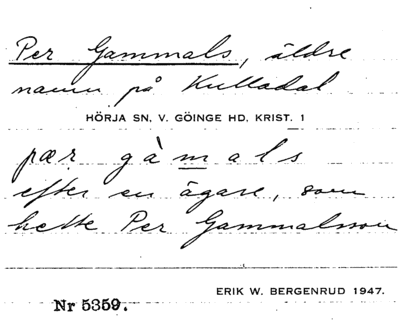 Per Gammals, äldre
namn på Kulladal
HÖRJA SN, V. GÖINGE HD, KRIST. 1
pær gàmals
efter en ägare, som
hette Per Gammalsson
ERIK W. BERGENRUD 1947.
Nr 5359.